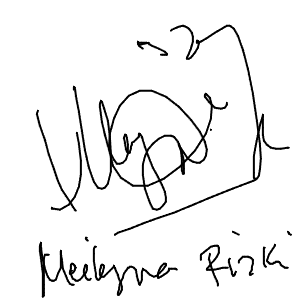 Meilyna Rizki